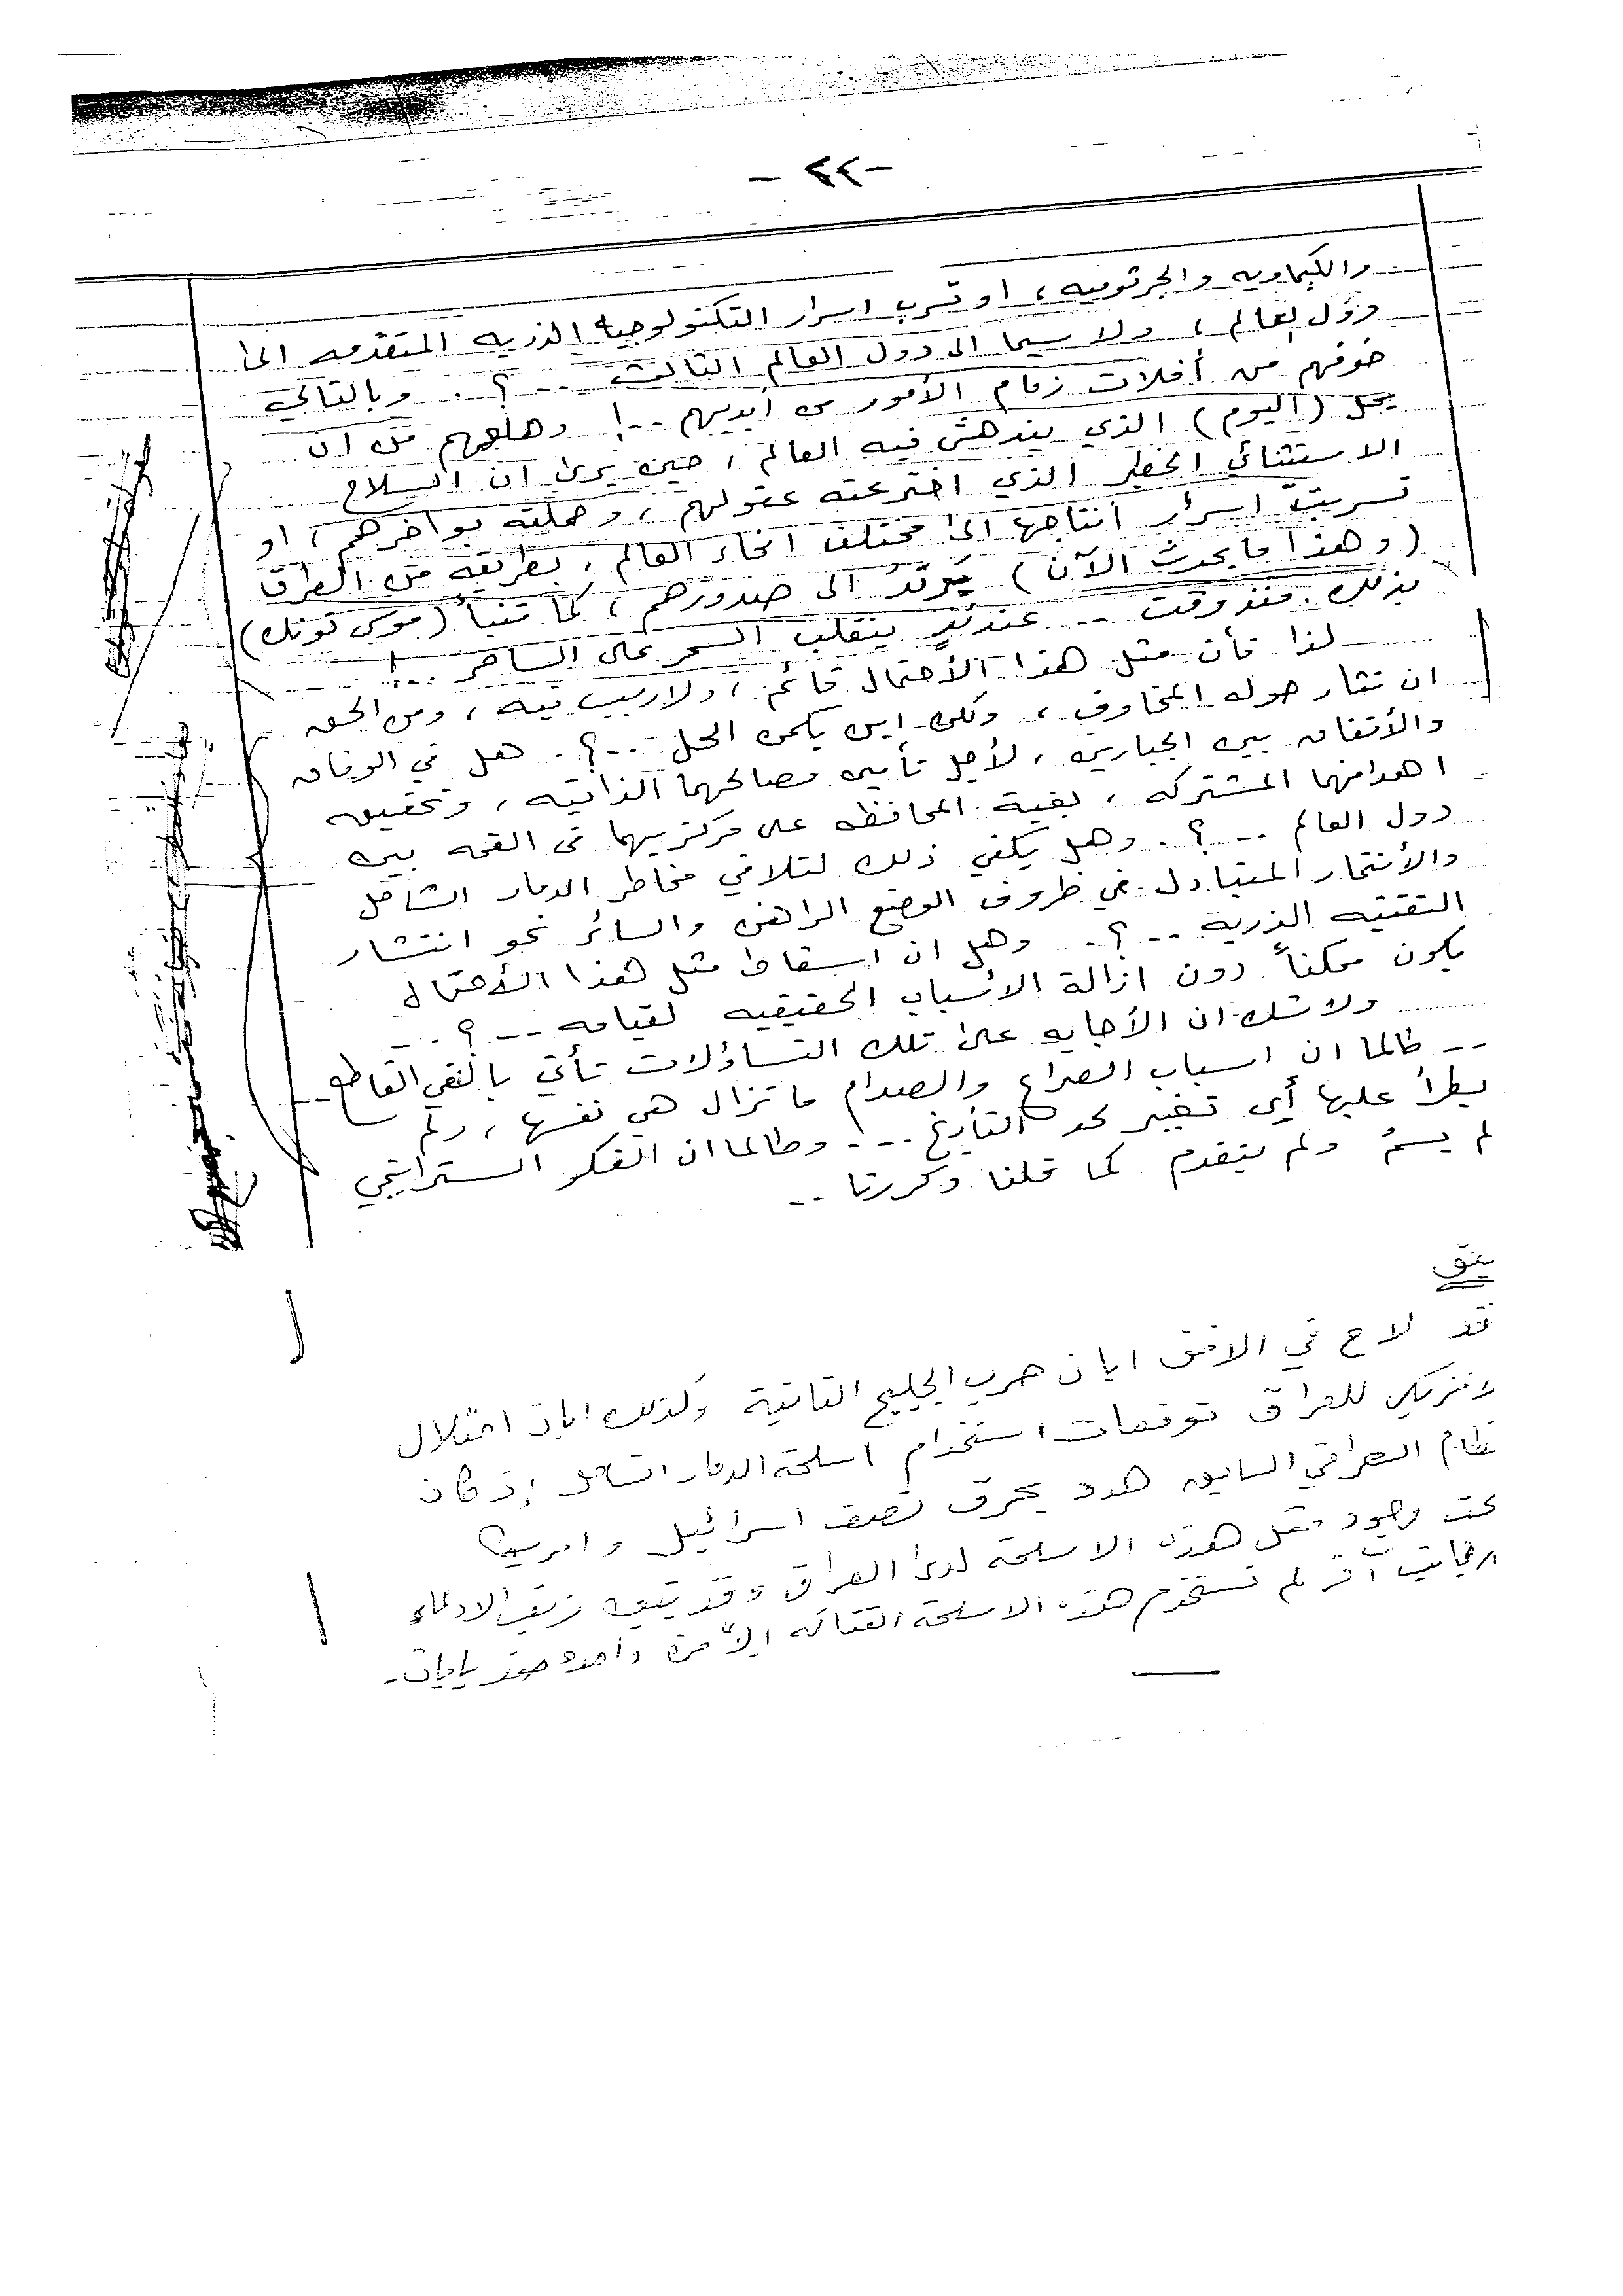 - ٤٤ -
والكيماويه والجرثوميه ، او تسرب اسرار التكنولوجيا الذريه المتقدمه الى
دول العالم ، ولا سيما الى دول العالم الثالث --؟. وبالتالي
خوفهم من أفلات زمام الأمور من أيديهم --! وهلعهم من ان
يحل (اليوم) الذي يندهش فيه العالم ، حين يرى ان السلاح
الاستثنائي الخطير الذي اخترعته عقولهم ، وحملته بواخرهم ، او
تسربت اسرار أنتاجها الى مختلف انحاء العالم ، بطريقة من الطرق
(وهذا ما يحدث الآن) يُرتدُ الى صدورهم ، كما تنبأ (موسى تونك)
بذلك منذ وقت -- عندئذٍ ينقلب السحر على الساحر --!
لذا فأن مثل هذا الأحتمال قائم ، ولاريب فيه ، ومن الحق
ان تثار حوله المخاوف ، ولكن اين يكمن الحل --؟. هل في الوفاق
والأتفاق بين الجبارين ، لأجل تأمين مصالحهما الذاتيه ، وتحقيق
اهدافهما المشتركه ، بغية المحافظه على مركزيهما في القمه بين
دول العالم --؟. وهل يكفي ذلك لتلافي مخاطر الدمار الشامل
والأنتحار المتبادل في ظروف الوضع الراهن والسائر نحو انتشار
التقنيه الذرية --؟. وهل ان اسقاط مثل هذا الأحتمال
يكون ممكناً دون ازالة الاسباب الحقيقيه لقيامه --؟.-
ولاشك ان الأجابه على تلك التساؤلات تأتي بالنفي القاطع
-- طالما ان اسباب الصراع والصدام ماتزال هي نفسها ، ولم
يطرأ عليها أي تغيير لحد التأريخ --- وطالما ان الفكر الستراتيجي
لم يسمُ ولم يتقدم كما قلنا وكررنا --
قد لاح في الافق ابان حرب الخليج الثانية وكذلك ابان احتلال
للعراق توقعات استخدام اسلحة الدمار الشامل إذ كان
العراقي السابق هدد بحرق نصف اسرائيل
وجود مثل هذه الاسلحة لدى العراق وقد تبين زيف الادعاء
آخر لم تستخدم هذه الاسلحة الفتاكه إلاّ مرة واحدة ضد يابان -